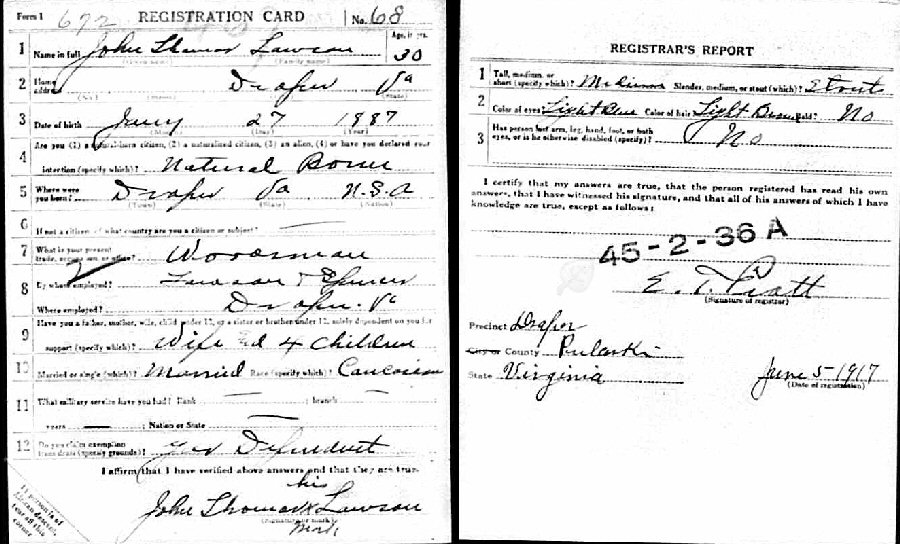 Form 1 672 REGISTRATION CARD No. 68
1 Name in full John Thomas Lawson Age, in yrs. 30
(Given name) (Family name)
2 Home address Draper Va
(No.) (Street) (State)
3 Date of birth 27 1887
(Month) (Day) (Year)
4 Are you (1) a natural-born citizen, (2) a naturalized citizen, (3) an alien, (4) or have you declared your
intention (specify which)? Natural Born
5 Where were you born? Draper Va U.S.A
(Town) (State) (Nation)
6 If not a citizen, of what country are you a citizen or subject?
7 What is your present trade, occupation, or office? Woodsman
8 By whom employed? & Spencer
Where employed? Draper. Va
9 Have you a father, mother, wife, child under 12, or a sister or brother under 12, solely dependent on you for
support (specify which)? Wife and 4 Children
10 Married or single (which)? Married Race (specify which)? Caucasian
11 What military service have you had? Rank branch
years ; Nation or State
12 Do you claim exemption from draft (specify grounds)? yes Dependent
I affirm that I have verified above answers and that they are true.
his
John Thomas x Lawson
(Signature or mark)
Mark
If person is of African descent, tear off this corner
REGISTRAR'S REPORT
1 Tall, medium, or short (specify which)? Medium Slender, medium, or stout (which)? Stout
2 Color of eyes? Light Blue Color of hair? Light Brown Bald? No
3 Has person lost arm, leg, hand, foot, or both eyes, or is he otherwise disabled (specify)? No
I certify that my answers are true, that the person registered has read his own
answers, that I have witnessed his signature, and that all of his answers of which I have
knowledge are true, except as follows:
45-2-36 A
E. T. Pratt
(Signature of registrar)
Precinct Draper
City or County Pulaski
State Virginia June 5-1917
(Date of registration)